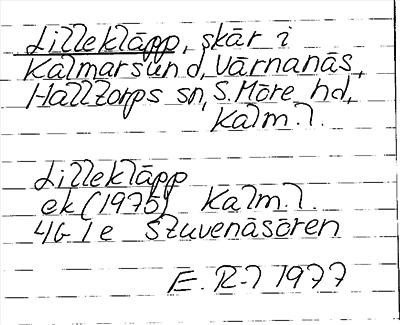 Lilleklāpp, skār i
Kalmarsund, Vārnanās,
Halltorps sn, S. Mōre hd,
Kalm. l.
Lilleklāpp
ek (1975) Kalm. l.
4G 1e Stuvenāsōren
E. R-7 1977